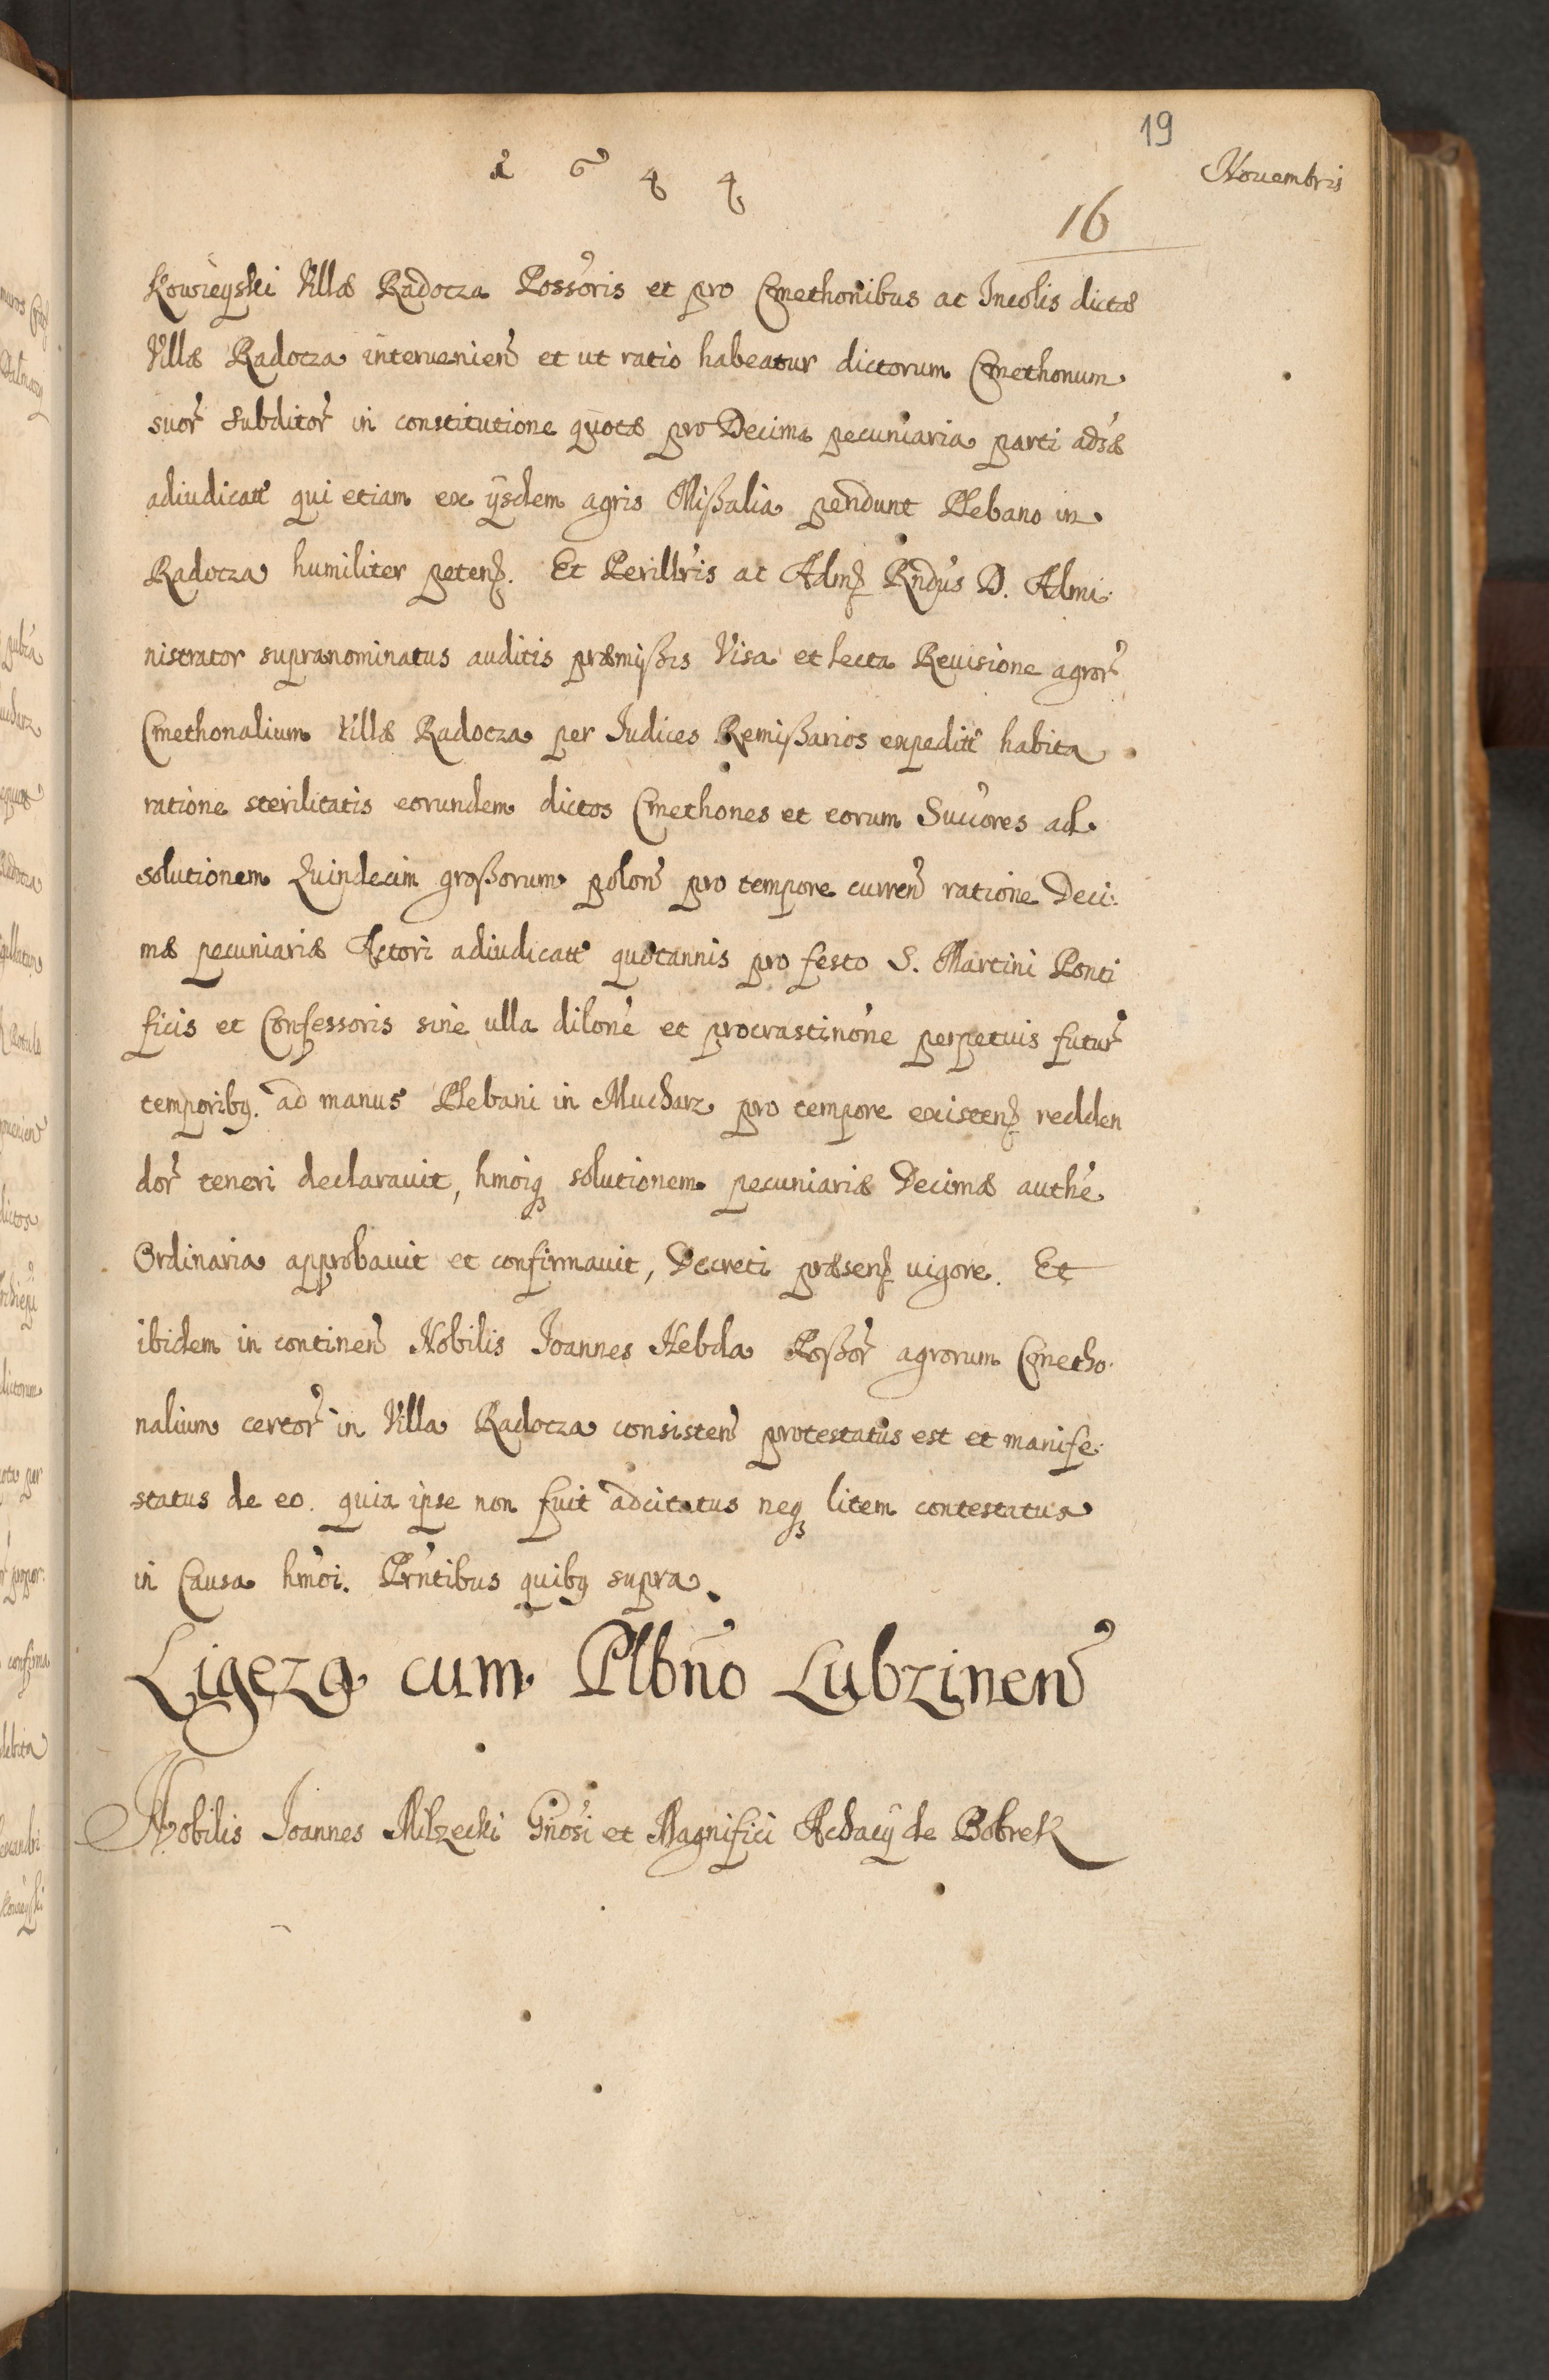 19
1644
Nouembris
16
Kowieyski Villæ Radocza Possoris et pro Cmethonibus ac Incolis dictæ
Villæ Radocza interuenien̄ et ut ratio habeatur dictorum Cmethonum
suor̄ subditor̄ in constitutione quotæ pro Decima pecuniaria parti adsæ
adiudicatt qui etiam ex ÿsdem agris Mißalia pendunt Plebano in
Radocza humiliter peten. Et Perillr̄is ac Adm Rndūs D. Admi
nistrator supranominatus auditis præmißis Visa et lecta Reuisione agror̄
Cmethonalium Villæ Radocza per Iudices Remißarios expeditt habita
ratione sterilitatis eorundem dictos Cmethones et eorum Suūores ad
solutionem Quindecim großorum polon̄ pro tempore curren̄ ratione Deci
mæ pecuniariæ Actori adiudicatt quotannis pro festo S. Martini Ponti
ficis et Confessoris sine ulla dilōne et procrastinōne perpetuis futur̄
temporibꝫ ad manus Plebani in Mucharz pro tempore existen redden
dor̄ teneri declarauit, hmoiqꝫ solutionem pecuniariæ Decimæ authē
Ordinaria approbauit et confirmauit, Decreti præsen vigore. Et
ibidem in continen̄ Nobilis Joannes Hebda Poßor̄ agrorum Cmetho
nalium certor̄ in Villa Radocza consisten̄ protestatus est et manife
status de eo. quia ipse non fuit adcitatus neqꝫ litem contestatus
in Causa hmōi. Prn̄tibus quibꝫ supra.
Ligęza cum Plbn̄o Lubzinen̄
Nobilis Joannes Milzecki Gn̄osi et Magnifici Achacÿ de Bobrek